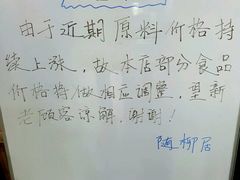 由于近期原料价格持
续上涨，故本店部分食品
价格将做相应调整，望新
老顾客谅解，谢谢！
随柳居